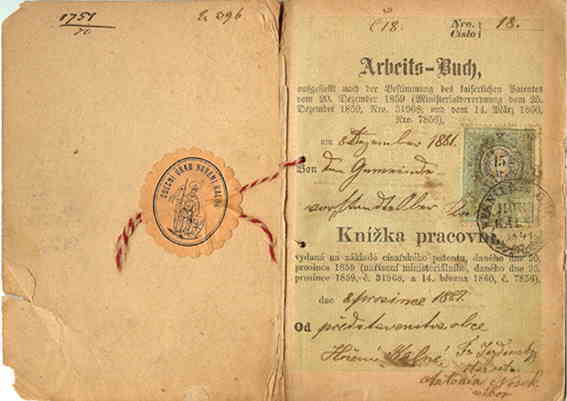 1751
č 18.
Nro.: 18.
Číslo:
Arbeits-Buch,
ausgestellt nach der Bestimmung des kaiserlichen Patentes
vom 20. Dezember 1859 (Ministerialverordnung vom 25.
Dezember 1859, Nro. 31968, und vom 14. März 1860,
Nro. 7856),
am 8 Dezember 1881.
Von dem Gemeinde-
15
OBECNÍ ÚŘAD HORNÍ KALNÁ
Knížka pracovní,
vydaná na základě císařského patentu, daného dne 20.
prosince 1859 (nařízení ministeriálního, daného dne 25.
prosince 1859, č. 31968, a 14. března 1860, č. 7856),
dne 8 prosince 1881.
Od představenstva obce
Hoření Kalné
Antonín Nosek